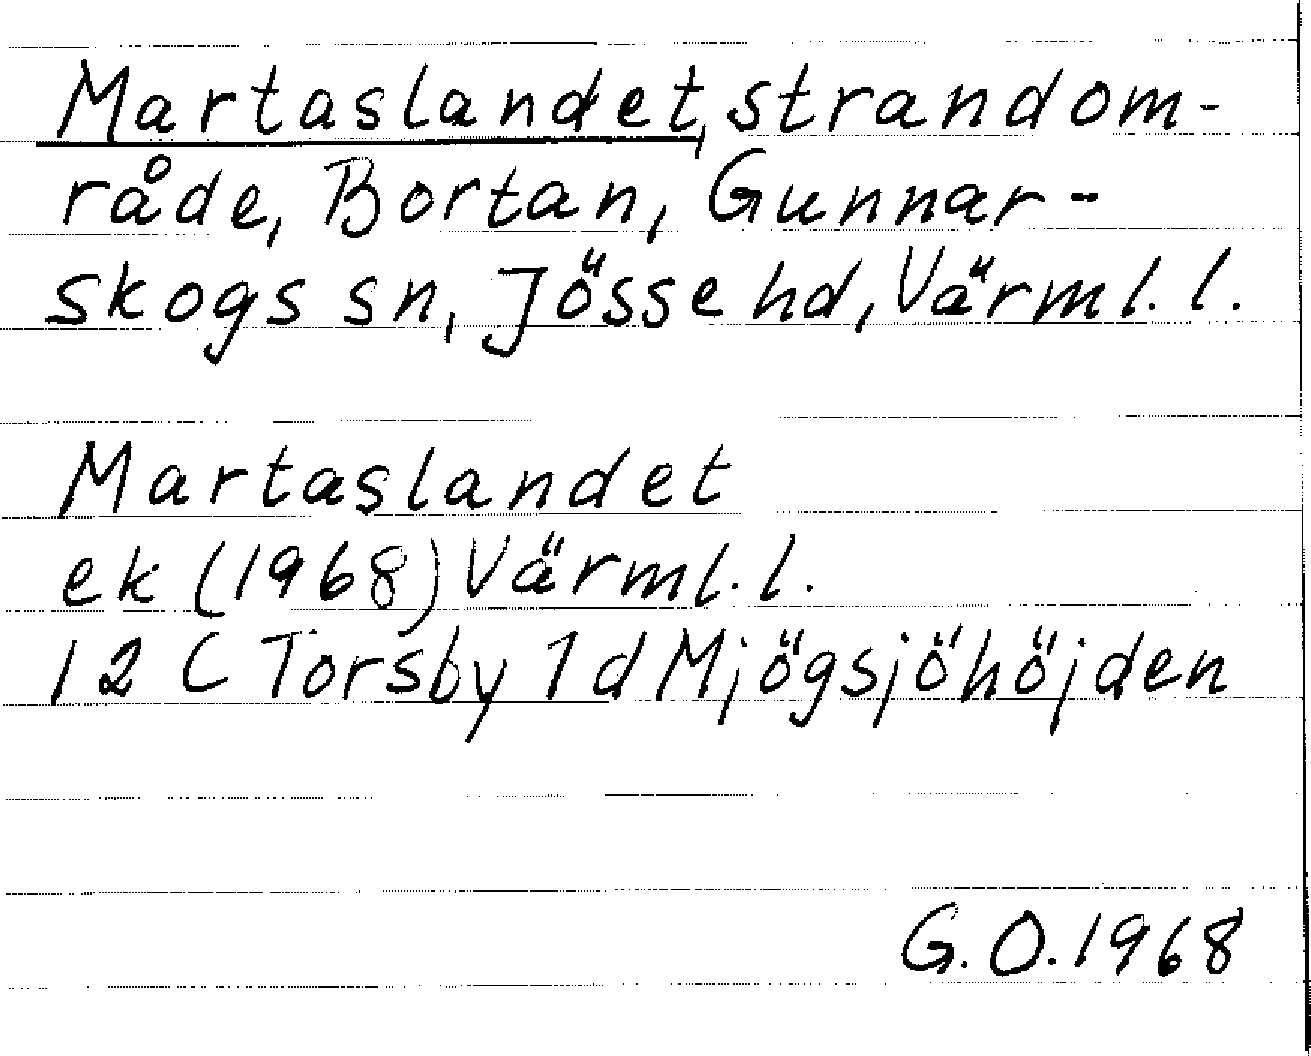 Martaslandet, strandom-
råde, Bortan, Gunnar-
skogs sn, Jösse hd, Värml. l.
Martaslandet
ek (1968) Värml. l.
12 C Torsby 1 d Mjögsjöhöjden
G. O. 1968